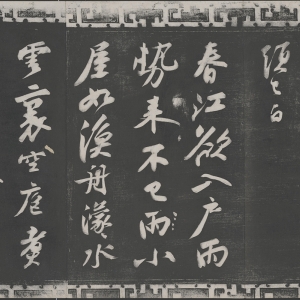 須已白
春江欲入戶雨
勢來不已雨小
屋如漁舟濛々水
雲裏空庖煮